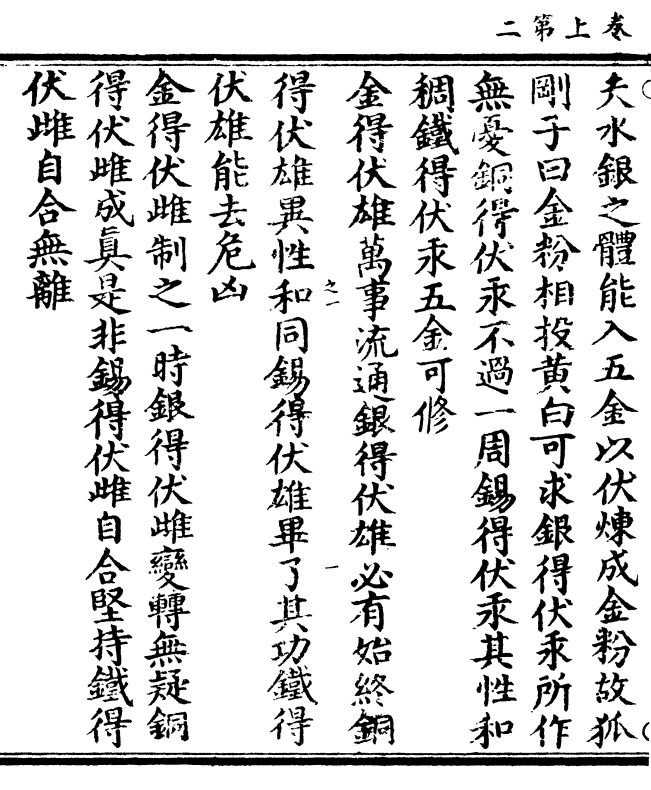 卷上第二
夫水銀之體能入五金以伏煉成金粉故狐
剛子曰金粉相投黄白可求銀得伏汞所作
無憂銅得伏汞不過一周錫得伏汞其性和
稠鐵得伏汞五金可修
金得伏雄萬事流通銀得伏雄必有始終銅
得伏雄異性和同錫得伏雄畢了其功鐵得
之一
一
伏雄能去危凶
金得伏雌制之一時銀得伏雌變轉無疑銅
得伏雌成真是非錫得伏雌自合堅持鐵得
伏雌自合無離